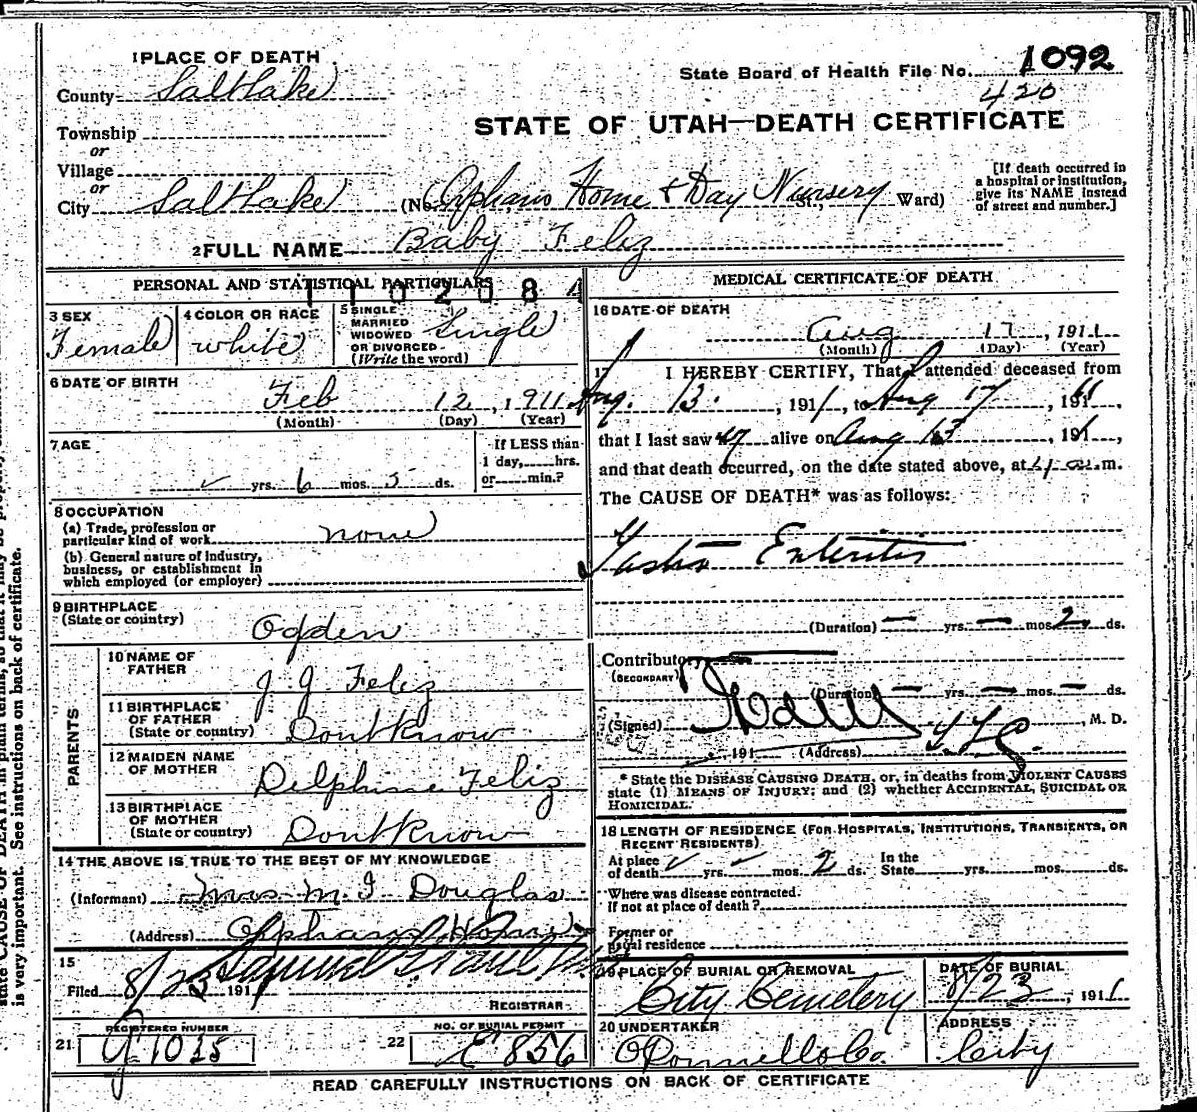 1 PLACE OF DEATH
County Salt Lake
Township
or
Village
or
City Salt Lake
State Board of Health File No. 1092
420
STATE OF UTAH—DEATH CERTIFICATE
(No. Orphans Home & Day Nursery St., Ward)
[If death occurred in
a hospital or institution,
give its NAME instead
of street and number.]
2 FULL NAME Baby Feliz
PERSONAL AND STATISTICAL PARTICULARS
1102084
3 SEX
Female
4 COLOR OR RACE
white
5 SINGLE
MARRIED
WIDOWED
OR DIVORCED
(Write the word)
Single
6 DATE OF BIRTH
Feb 12, 1911
(Month) (Day) (Year)
7 AGE
✓ yrs. 6 mos. 5 ds.
If LESS than
1 day, hrs.
or min.?
8 OCCUPATION
(a) Trade, profession or
particular kind of work
none
(b) General nature of industry,
business, or establishment in
which employed (or employer)
9 BIRTHPLACE
(State or country)
Ogden
PARENTS
10 NAME OF
FATHER
J. J. Feliz
11 BIRTHPLACE
OF FATHER
(State or country)
Dont Know
12 MAIDEN NAME
OF MOTHER
Delphine Feliz
13 BIRTHPLACE
OF MOTHER
(State or country)
Dont Know
14 THE ABOVE IS TRUE TO THE BEST OF MY KNOWLEDGE
(Informant) Mrs M. I. Douglas
(Address) Orphans Home
15
Filed 8/23 191
Samuel G. Paul
REGISTRAR
21 REGISTERED NUMBER
G 1035
22 NO. OF BURIAL PERMIT
E 856
MEDICAL CERTIFICATE OF DEATH
16 DATE OF DEATH
Aug 17, 1911
(Month) (Day) (Year)
17 I HEREBY CERTIFY, That I attended deceased from
Aug. 13., 1911, to Aug 17, 1911,
that I last saw alive on Aug 13, 191 1,
and that death occurred, on the date stated above, at m.
The CAUSE OF DEATH* was as follows:
Gastro Enteritis
(Duration) — yrs. — mos. 2 ds.
Contributory
(SECONDARY)
(Duration) — yrs. — mos. — ds.
(Signed) , M. D.
, 191 (Address)
* State the DISEASE CAUSING DEATH, or, in deaths from VIOLENT CAUSES
state (1) MEANS OF INJURY; and (2) whether ACCIDENTAL, SUICIDAL OR
HOMICIDAL.
18 LENGTH OF RESIDENCE (FOR HOSPITALS, INSTITUTIONS, TRANSIENTS, OR
RECENT RESIDENTS)
At place
of death ✓ yrs. ✓ mos. 2 ds.
In the
State yrs. mos. ds.
Where was disease contracted.
If not at place of death?
Former or
usual residence
19 PLACE OF BURIAL OR REMOVAL
City Cemetery
DATE OF BURIAL
8/23, 1911
20 UNDERTAKER
O'Donnell & Co.
ADDRESS
City
READ CAREFULLY INSTRUCTIONS ON BACK OF CERTIFICATE
is very important. See instructions on back of certificate.